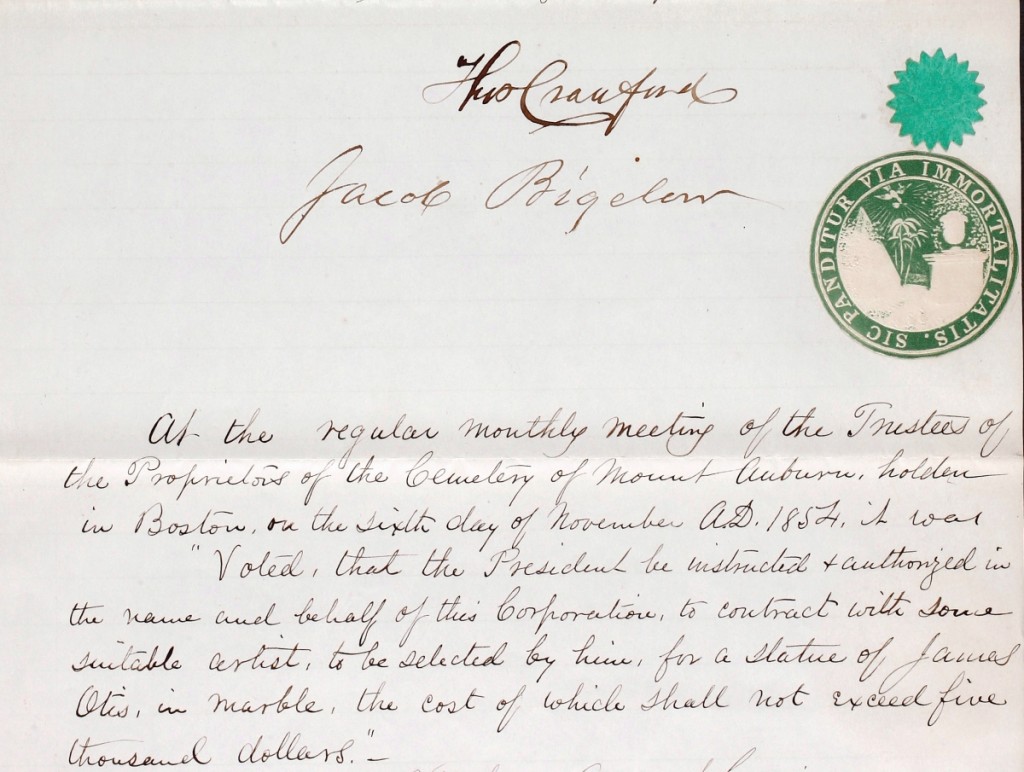 Thos Crawford
Jacob Bigelow
SIC PANDITUR VIA IMMORTALITATIS.
At the regular monthly meeting of the Trustees of
the Proprietors of the Cemetery of Mount Auburn, holden
in Boston, on the sixth day of November A.D. 1854, it was
"Voted, that the President be instructed & authorized in
the name and behalf of this Corporation, to contract with some
suitable artist, to be selected by him, for a statue of James
Otis, in marble, the cost of which shall not exceed five
thousand dollars."—